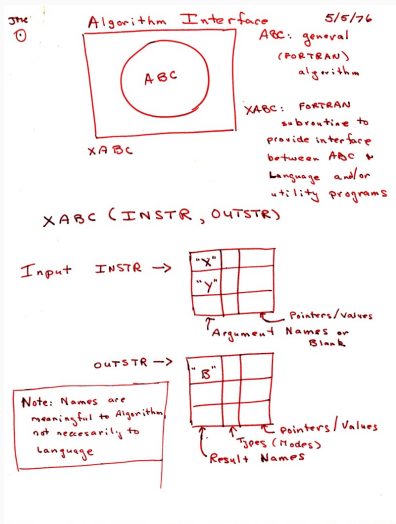 JMC
1
Algorithm Interface
5/5/76
ABC
XABC
ABC: general
(FORTRAN)
algorithm
XABC: FORTRAN
subroutine to
provide interface
between ABC &
Language and/or
utility programs
XABC (INSTR, OUTSTR)
Input INSTR →
"X"
"Y"
Pointers/Values
Argument Names or
Blank
OUTSTR →
"B"
Pointers/Values
Types (Modes)
Result Names
Note: Names are
meaningful to Algorithm,
not necesarily to
Language